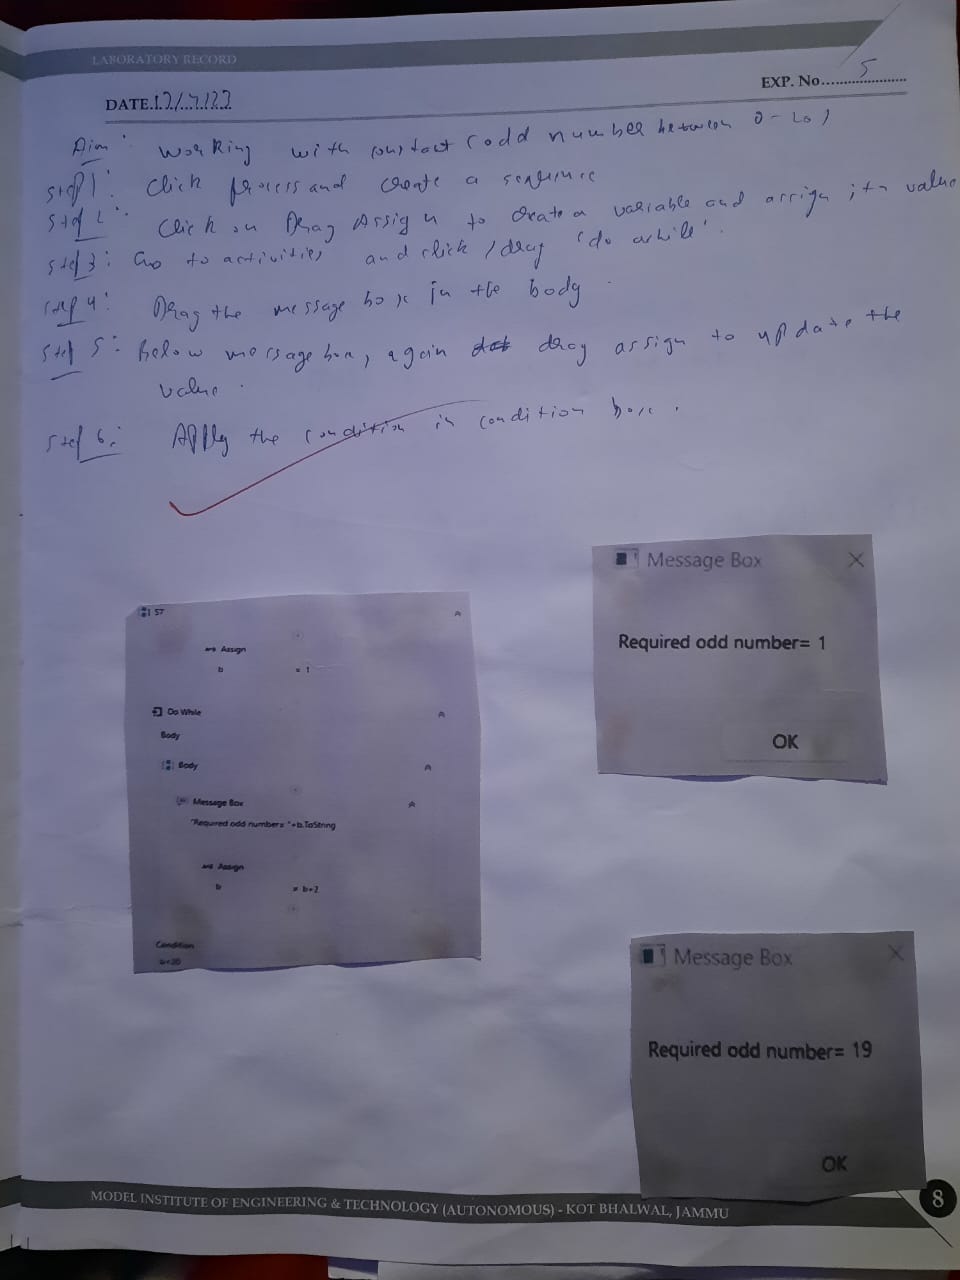 LABORATORY RECORD
EXP. No. 5
DATE. 12/4/22
Aim: Working with constact (odd number between 0-20)
Step 1: Click process and create a sequence
Step 2: Click on Drag Assign to create a variable and assign its value
Step 3: Go to activities and click / drag 'do while'.
Step 4: Drag the message box in the body.
Step 5: Below message box, again drag assign to update the
value.
Step 6: Apply the condition in condition box.
Message Box
Required odd number= 1
OK
57
Assign
b = 1
Do While
Body
Body
Message Box
"Required odd number= "+b.ToString
Assign
b = b+2
Condition
b<20
Message Box
Required odd number= 19
OK
MODEL INSTITUTE OF ENGINEERING & TECHNOLOGY (AUTONOMOUS) - KOT BHALWAL, JAMMU
8